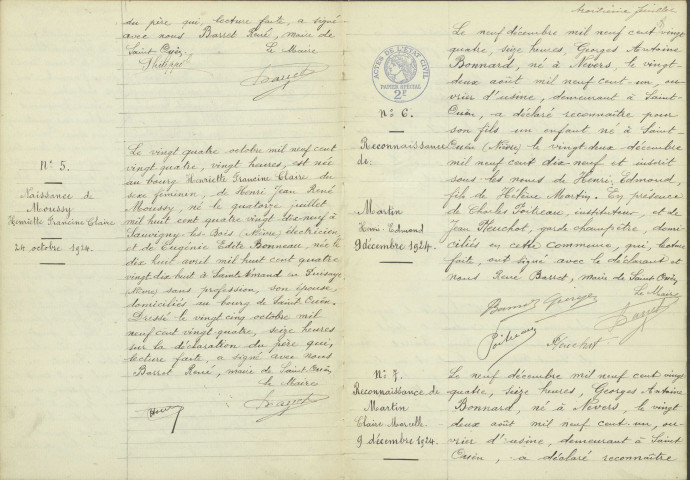 du père qui, lecture faite, a signé
avec nous Barret René, maire de
Saint Ouën.
Le Maire
Philippe
Barret
N° 5.
Naissance de
Moussy
Henriette Francine Claire
24 octobre 1924.
Le vingt quatre octobre mil neuf cent
vingt quatre, vingt heures, est née
au bourg Henriette Francine Claire du
sexe féminin, de Henri Jean René
Moussy, né le quatorze juillet
mil huit cent quatre vingt dix neuf à
Sauvigny-les-Bois (Nièvre) électricien,
et de Eugénie Edite Bonneau, née le
dix huit avril mil huit cent quatre
vingt dix huit à Saint Amand en Puisaye
(Nièvre) sans profession, son épouse,
domiciliés au bourg de Saint-Ouën.
Dressé le vingt cinq octobre mil
neuf cent vingt quatre, seize heures
sur la déclaration du père qui,
lecture faite, a signé avec nous
Barret René, maire de Saint Ouën
Le Maire
Barret
feuillet
ACTES DE L'ÉTAT CIVIL
PAPIER SPÉCIAL
2F
N° 6.
Reconnaissance
de
Martin
Henri Edmond
9 décembre 1924.
Le neuf décembre mil neuf cent vingt
quatre, seize heures, Georges Antoine
Bonnard, né à Nevers, le vingt
deux août mil neuf cent un, ou-
vrier d'usine, demeurant à Saint-
Ouën, a déclaré reconnaître pour
son fils un enfant né à Saint-
Ouën (Nièvre) le vingt deux décembre
mil neuf cent dix-neuf et inscrit
sous les noms de Henri, Edmond,
fils de Hélène Martin. En présence
de Charles Poitreau, instituteur, et de
Jean Pleuchot, garde champêtre, domi-
ciliés en cette commune, qui, lecture
faite, ont signé avec le déclarant et
nous René Barret, maire de Saint Ouën
Le Maire
Bonnard Georges
Barret
Poitreau
Pleuchot
N° 7.
Reconnaissance de
Martin
Claire Marcelle
9 décembre 1924.
Le neuf décembre mil neuf cent vingt
quatre, seize heures, Georges Antoine
Bonnard, né à Nevers, le vingt
deux août mil neuf cent un, ou-
vrier d'usine, demeurant à Saint
Ouën, a déclaré reconnaître